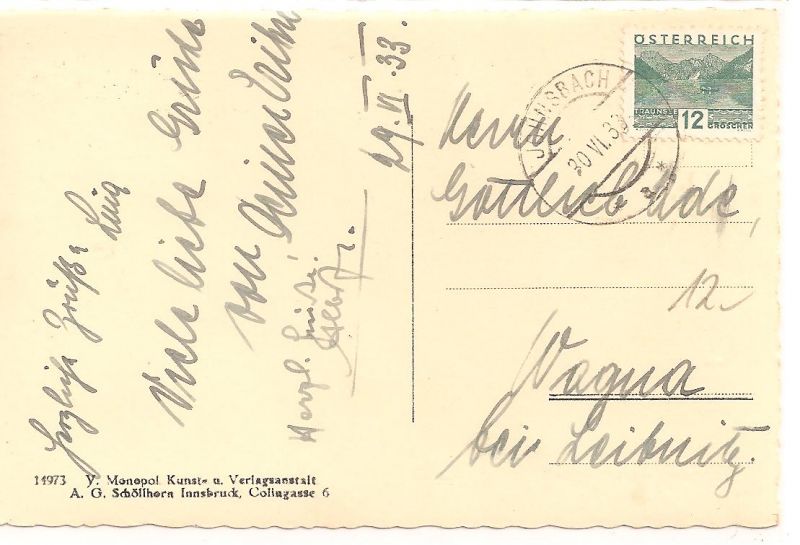 Herzliche Grüße
Viele liebe Grüße
von
Herzl. Grüße!
29. VI. 33.
ÖSTERREICH
TRAUNSEE
12
GROSCHEN
30 VI. 33
Herrn
Gottlieb Ade,
12
Wagna
bei Leibnitz.
14973 V. Monopol Kunst- u. Verlagsanstalt
A. G. Schöllhorn Innsbruck, Colingasse 6